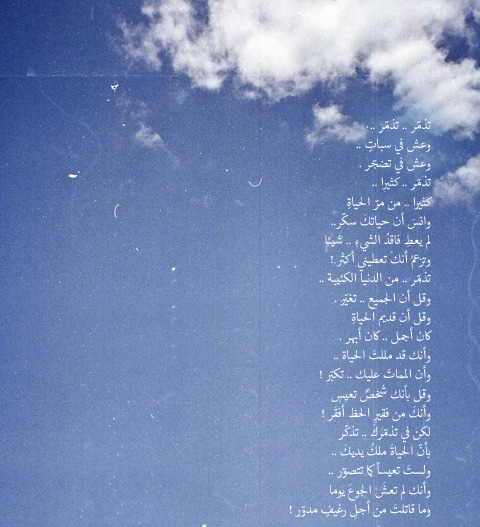 تذمّر .. تذمّر ..
وعش في سباتٍ ..
وعش في تضجّر .
تذمّر .. كثيرا ..
كثيرا .. من مرّ الحياةِ
وانسَ أن حياتكَ سكّر..
لم يعطِ فاقدُ الشيءِ .. شيئا
وتزعمُ أنكَ تعطيني أكثر !
تذمّر .. من الدنيا الكئيبة ..
وقل أن الجميع .. تغيّر .
وقل أن قديم الحياةِ
كان أجمل .. كان أبهر .
وأنك قد مللتَ الحياة ..
وأن المماتَ عليك .. تكبّر !
وقل بأنك شخصٌ تعيسٍ
وأنكَ من فقيرِ الحظ أفقر !
لكن في تذمّركَ .. تذكّر
بأنّ الحياةَ ملكُ يديكَ ..
ولستَ تعيساً كما تتصوّر ..
وأنك لم تعش الجوعَ يوما
وما قاتلتَ من أجلِ رغيفٍ مدوّر !